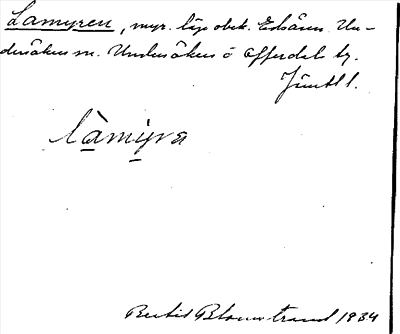 Lamyren, myr. läge obek. Enl. ären. Un-
dersåkers sn. Undersåkers o Offerdals tg.
Jämtl l.
làmyra
Bertil Blomstrand 1934